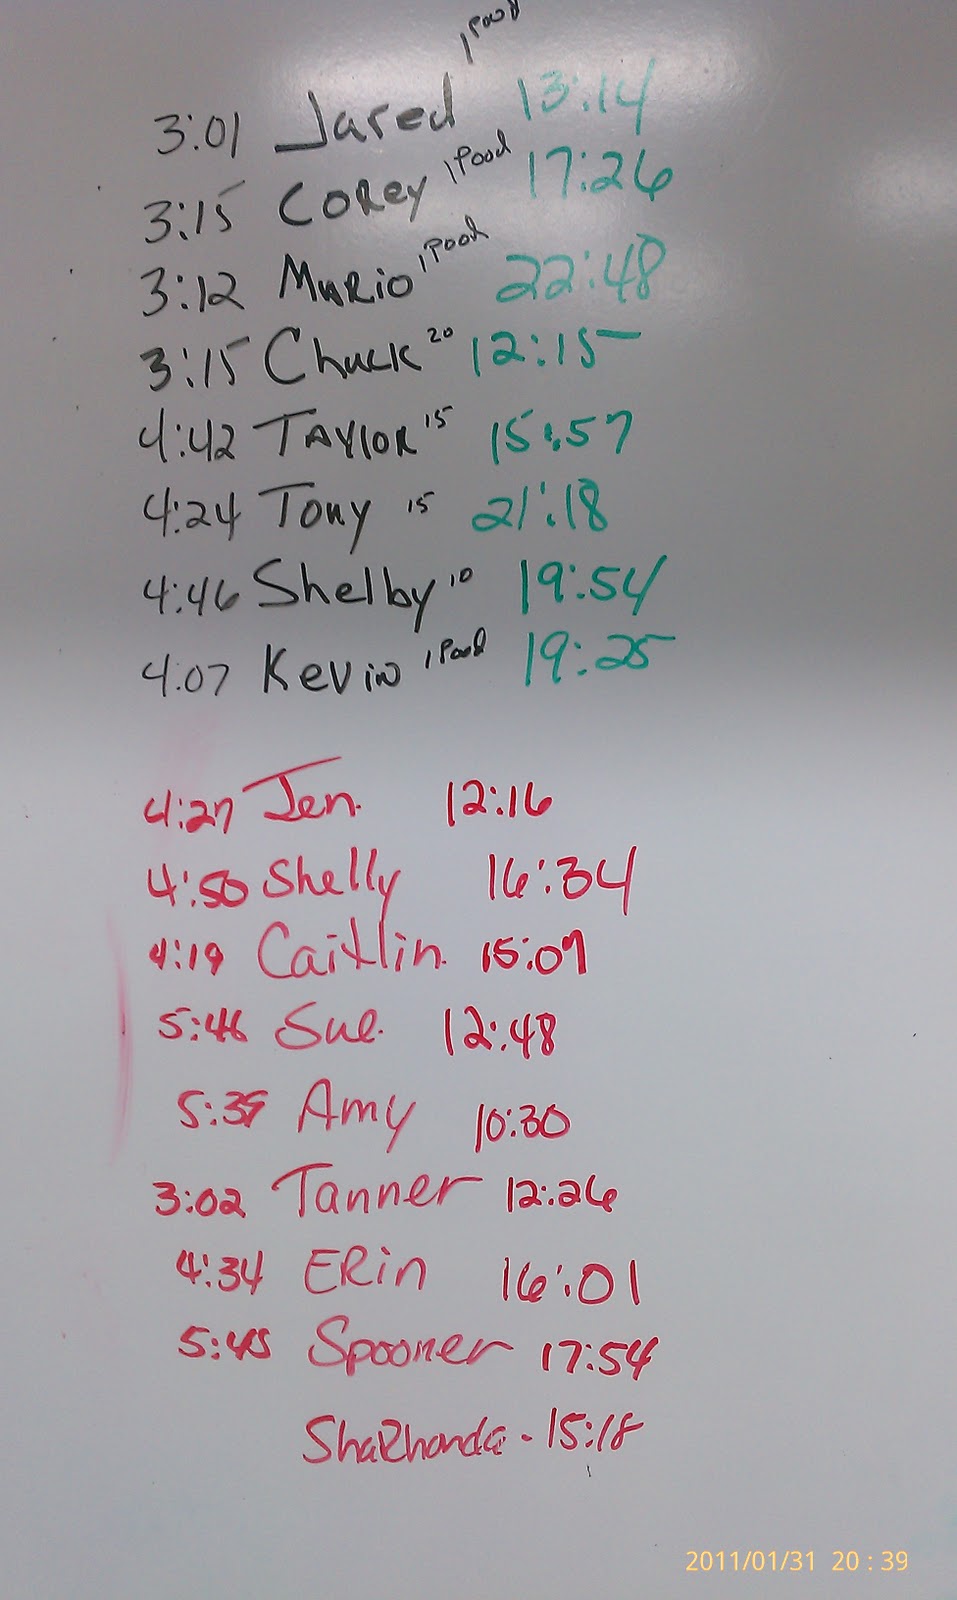 3:01 Jared 1 Pood 13:14
3:15 Corey 1 Pood 17:26
3:12 Mario 1 Pood 22:48
3:15 Chuck 20 12:15
4:42 Taylor 15 15:57
4:24 Tony 15 21:18
4:46 Shelby 10 19:54
4:07 Kevin 1 Pood 19:25
4:27 Jen. 12:16
4:50 Shelly 16:34
4:19 Caitlin. 15:09
5:46 Sue. 12:48
5:39 Amy 10:30
3:02 Tanner 12:26
4:34 ERin 16:01
5:45 Spooner 17:54
ShaRhonda - 15:18
2011/01/31 20:39